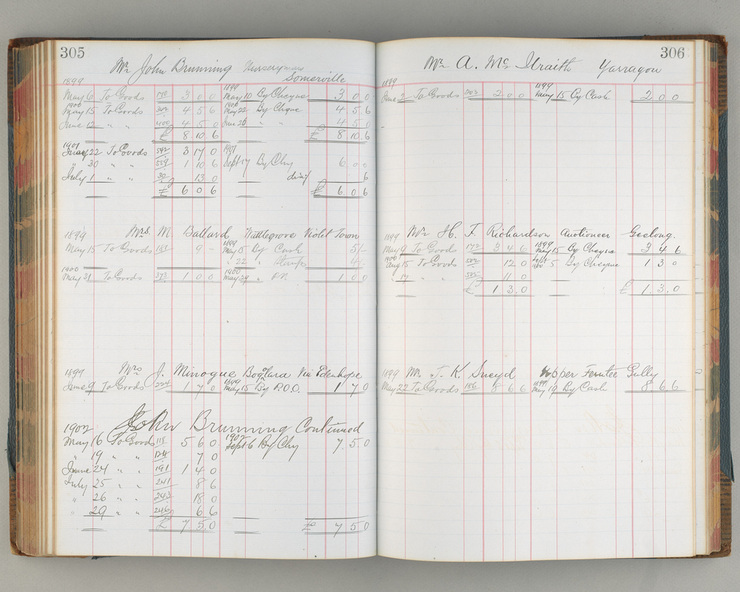 305
Mr John Brunning Nurseryman
Somerville
1899 1899
May 6 To Goods 3 0 0 May 10 By Cheque 3 0 0
1900 1900
May 15 To Goods 4 5 6 May 22 By Chque 4 5 6
June 12 " " 4 5 0 June 4 5 0
£ 8 10 6 £ 8 10 6
1901 1901
June 22 To Goods 3 17 0
" 30 " " 1 10 6 Sept 17 By Chq 6 0 0
July 1 " " 13 0 6
£ 6 0 6 £ 6 0 6
1899 Mrs M Ballard Wattlegrove Violet Town
1899
May 15 To Goods 9 - May 15 By Cash 5/-
" 22 " Stamps 4/-
1900 1900
May 21 To Goods 1 0 0 May 1 0 0
1899 Mrs J. Minogue Via Echuca
June 9 To Goods 1 7 0 15 By P.O.O. 1 7 0
John Brunning Continued
1902 1902
May 16 To Goods 118 5 6 0 Sept 6 By Chq 7 5 0
" 19 " " 7 0
June 24 " " 191 1 4 0
July 25 " " 241 8 6
" 26 " " 243 18 0
" 29 " " 246 6 6
£ 7 5 0 £ 7 5 0
306
Mr A. McIlraith Yarragon
1899 1899
June 2 To Goods 2 0 0 15 By Cash 2 0 0
1899 Mr H. F. Richardson Auctioneer Geelong
1899
May 9 To Goods 3 4 6 May 15 By Cheque 3 4 6
1900
15 To Goods 12 0 5 By Cheque 1 3 0
" " 11 0
£ 1 3 0 £ 1 3 0
1899 Mr J. K. Upper Ferntree Gully
1899
May 22 To Goods 8 6 6 May 19 By Cash 8 6 6